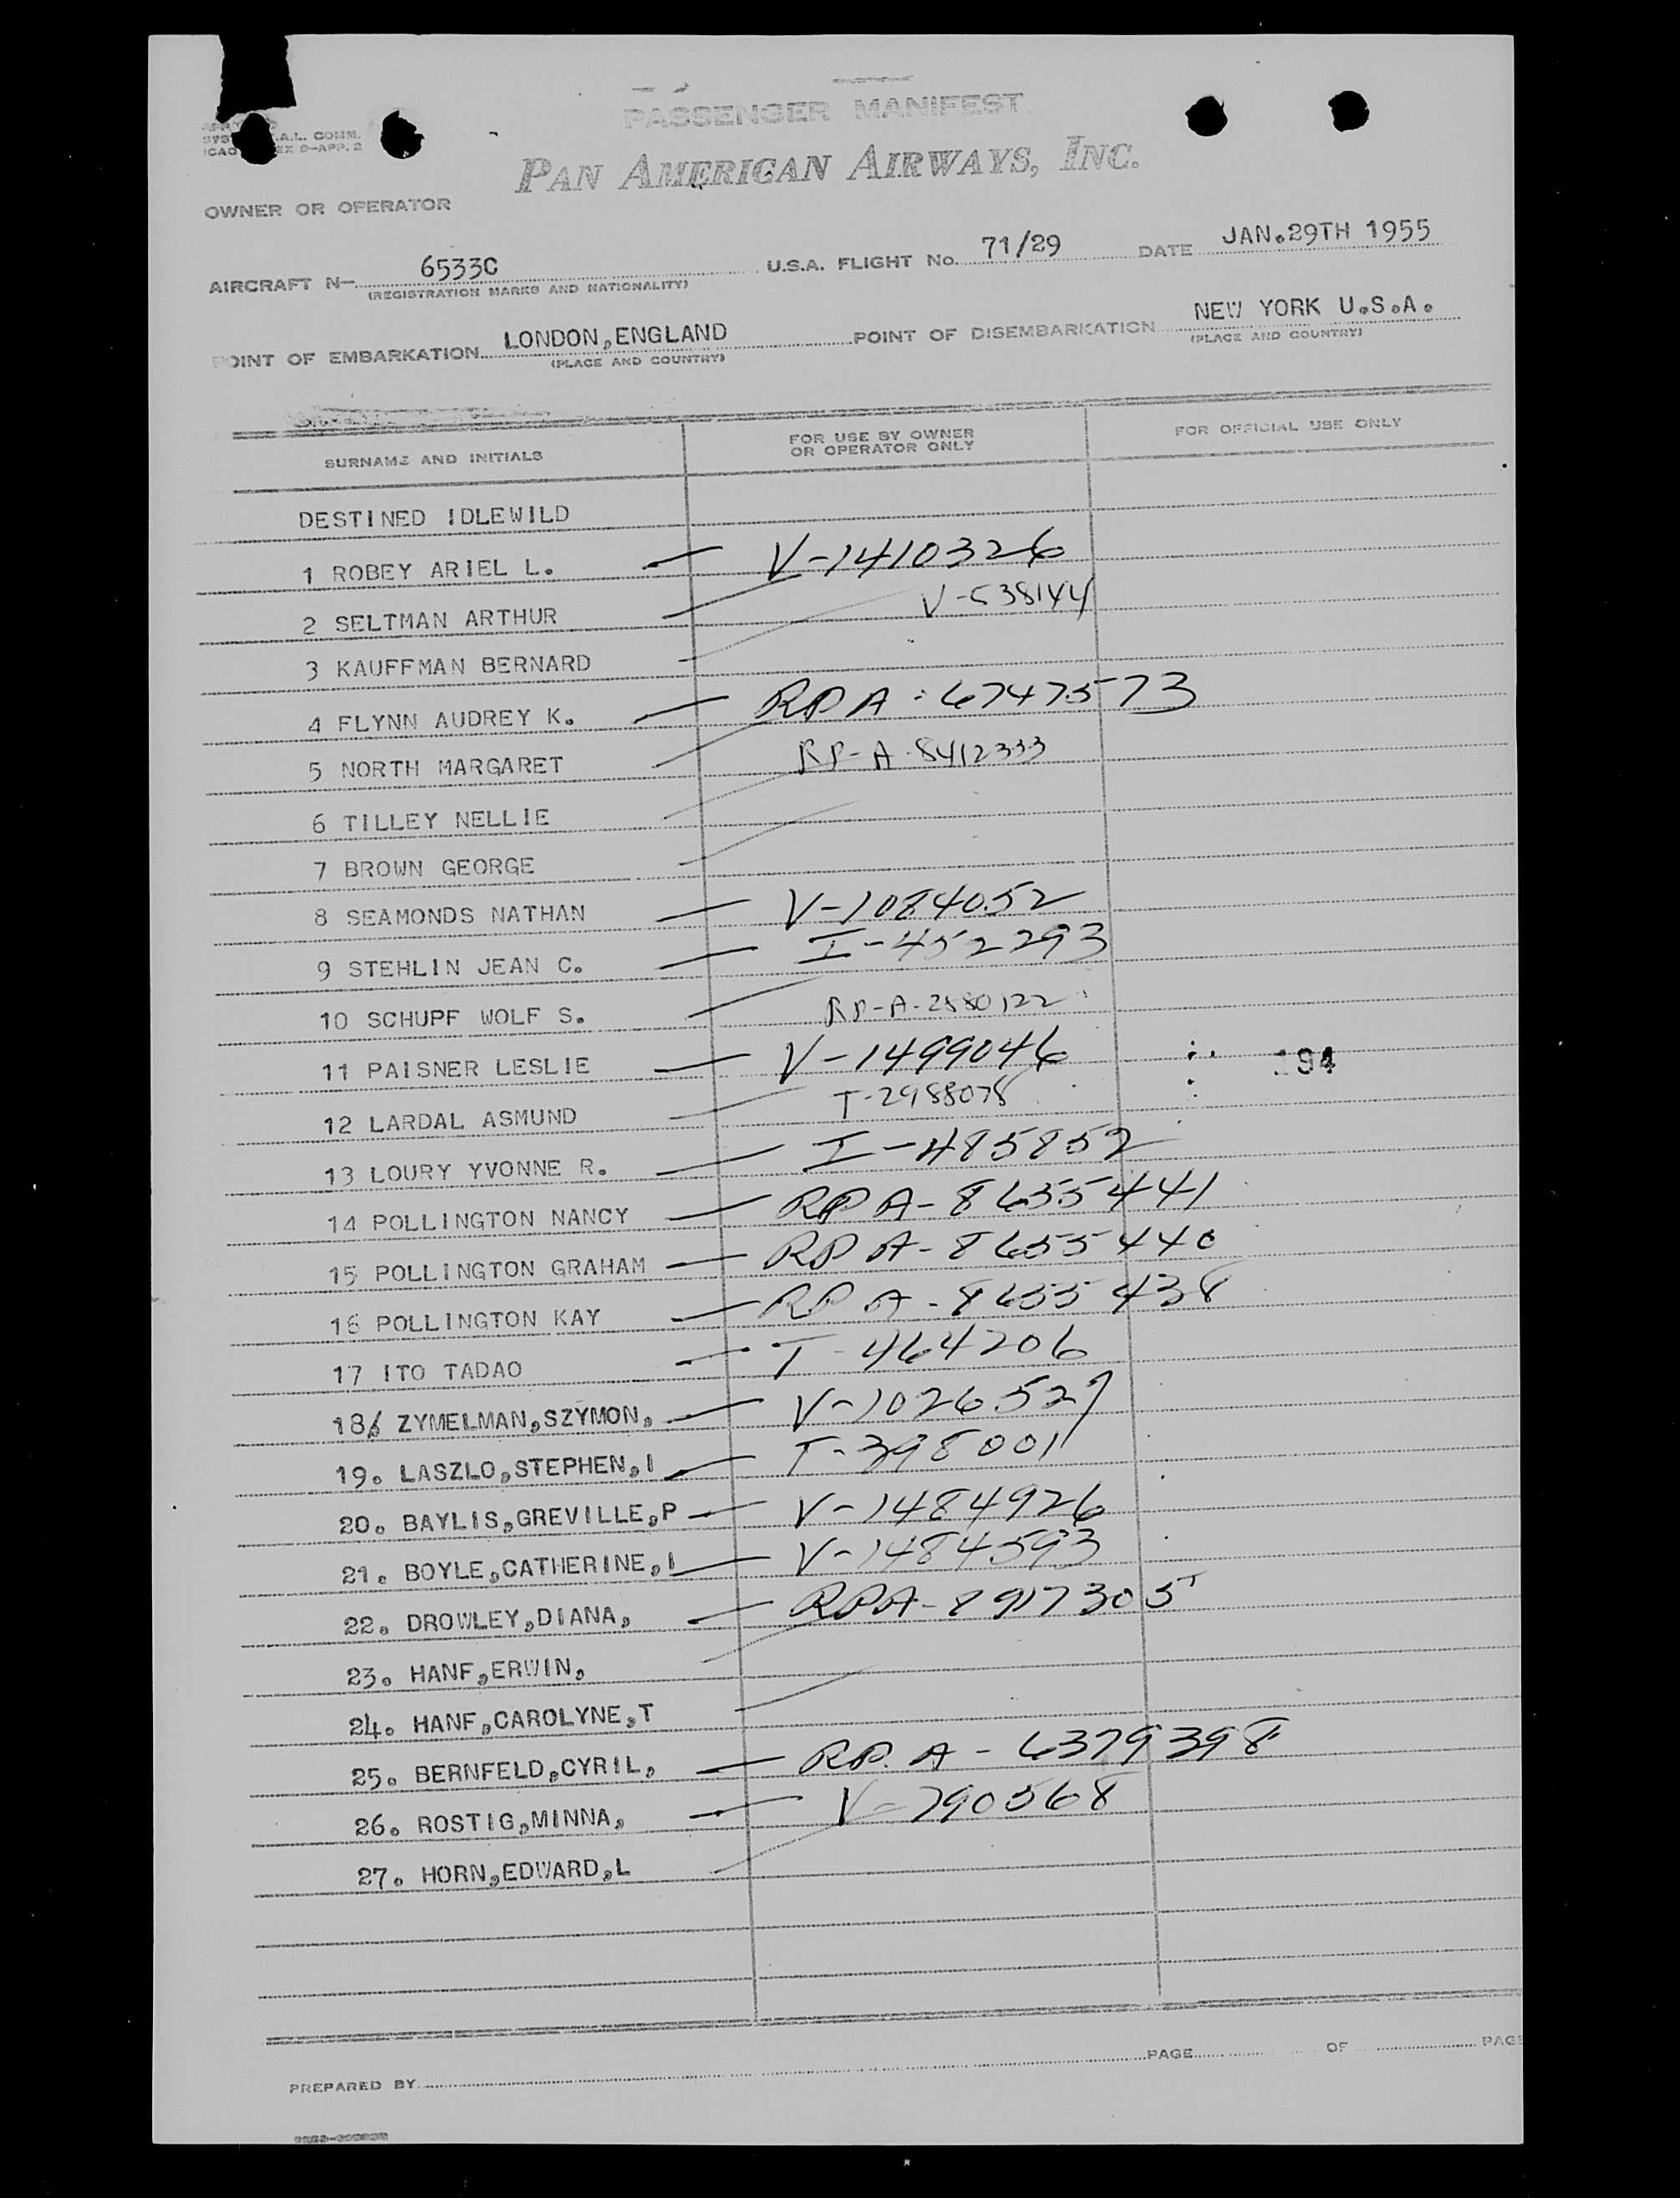 PASSENGER MANIFEST
A.L. COMM.
EX 9-APP. 2
PAN AMERICAN AIRWAYS, INC.
OWNER OR OPERATOR
AIRCRAFT N- 6533C U.S.A. FLIGHT No. 71/29 DATE JAN.29TH 1955
(REGISTRATION MARKS AND NATIONALITY)
POINT OF EMBARKATION LONDON,ENGLAND POINT OF DISEMBARKATION NEW YORK U.S.A.
(PLACE AND COUNTRY) (PLACE AND COUNTRY)
SURNAME AND INITIALS FOR USE BY OWNER OR OPERATOR ONLY FOR OFFICIAL USE ONLY
DESTINED IDLEWILD
1 ROBEY ARIEL L. V-1410326
2 SELTMAN ARTHUR V-538144
3 KAUFFMAN BERNARD
4 FLYNN AUDREY K. RPA-6747573
5 NORTH MARGARET RP-A-8412333
6 TILLEY NELLIE
7 BROWN GEORGE
8 SEAMONDS NATHAN V-1084052
9 STEHLIN JEAN C. I-452293
10 SCHUPF WOLF S. RP-A-2880122
11 PAISNER LESLIE V-1499046 194
12 LARDAL ASMUND T-2988078
13 LOURY YVONNE R. I-485852
14 POLLINGTON NANCY RPA-8655441
15 POLLINGTON GRAHAM RPA-8655440
16 POLLINGTON KAY RPA-8655438
17 ITO TADAO T-464206
18. ZYMELMAN,SZYMON, V-1026527
19. LASZLO,STEPHEN,I T-398001
20. BAYLIS,GREVILLE,P V-1484926
21. BOYLE,CATHERINE,I V-1484593
22. DROWLEY,DIANA, RPA-8917305
23. HANF,ERWIN,
24. HANF,CAROLYNE,T
25. BERNFELD,CYRIL, RP.A-6379398
26. ROSTIG,MINNA, V-790568
27. HORN,EDWARD,L
PAGE OF PAGE
PREPARED BY